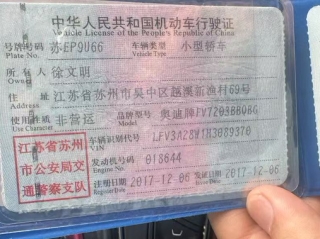 中华人民共和国机动车行驶证
Vehicle License of the People's Republic of China
号牌号码 苏EP9U66 车辆类型 小型轿车
Plate No. Vehicle Type
所有人 徐文明
Owner
住址 江苏省苏州市吴中区越溪新渔村69号
Address
使用性质 非营运 品牌型号 奥迪牌FV7203BBDBG
Use Character Model
车辆识别代号 LFV3A28W1H3089370
VIN
江苏省苏州
市公安局交
通警察支队
发动机号码 018644
Engine No.
注册日期 2017-12-06 发证日期 2017-12-06
Register Date Issue Date